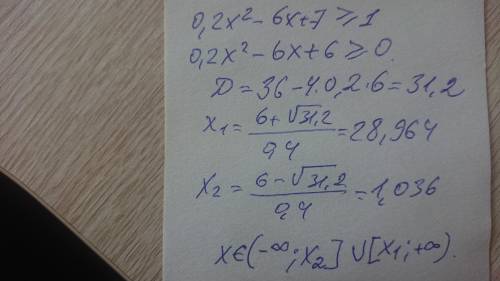 0,2x² - 6x+7 ⩾ 1
0,2x² - 6x + 6 ⩾ 0.
D = 36 - 4·0,2·6 = 31,2
x₁ = (6+√31,2)/0,4 = 28,964
x₂ = (6-√31,2)/0,4 = 1,036
x∈(-∞; x₂] ∪ [x₁; +∞).